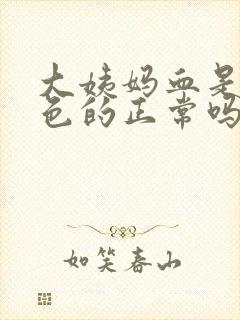 大姨妈血是
色的正常吗
如笑春山